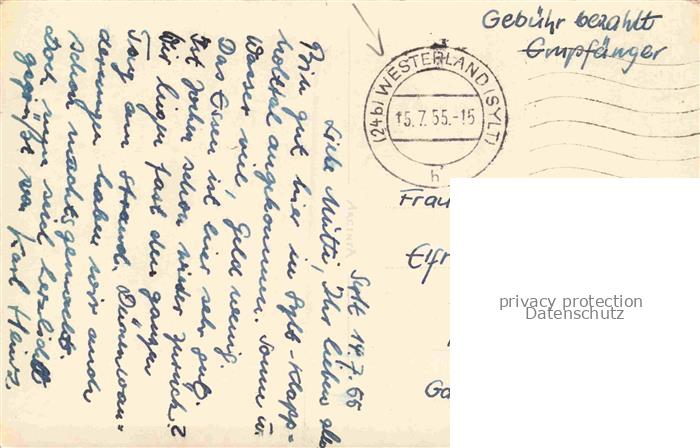 Gebühr bezahlt
Empfänger
(24b) WESTERLAND (SYLT)
15.7.55.-15
h
Frau
Elfr
Ga
privacy protection
Datenschutz
Sylt 14.7.55
Liebe Mutti, Ihr lieben
Bin gut hier in Sylt-Klapp=
holttal angekommen. Sonne u.
Wasser viel, Geld wenig.
Das Essen ist hier sehr gut.
Ist schon wieder zurück?
Wir liegen fast den ganzen
Tag am Strand. Dünenwan=
derungen haben wir auch
schon nachts gemacht.
seid herzlichst
gegrüßt von Karl Heinz.